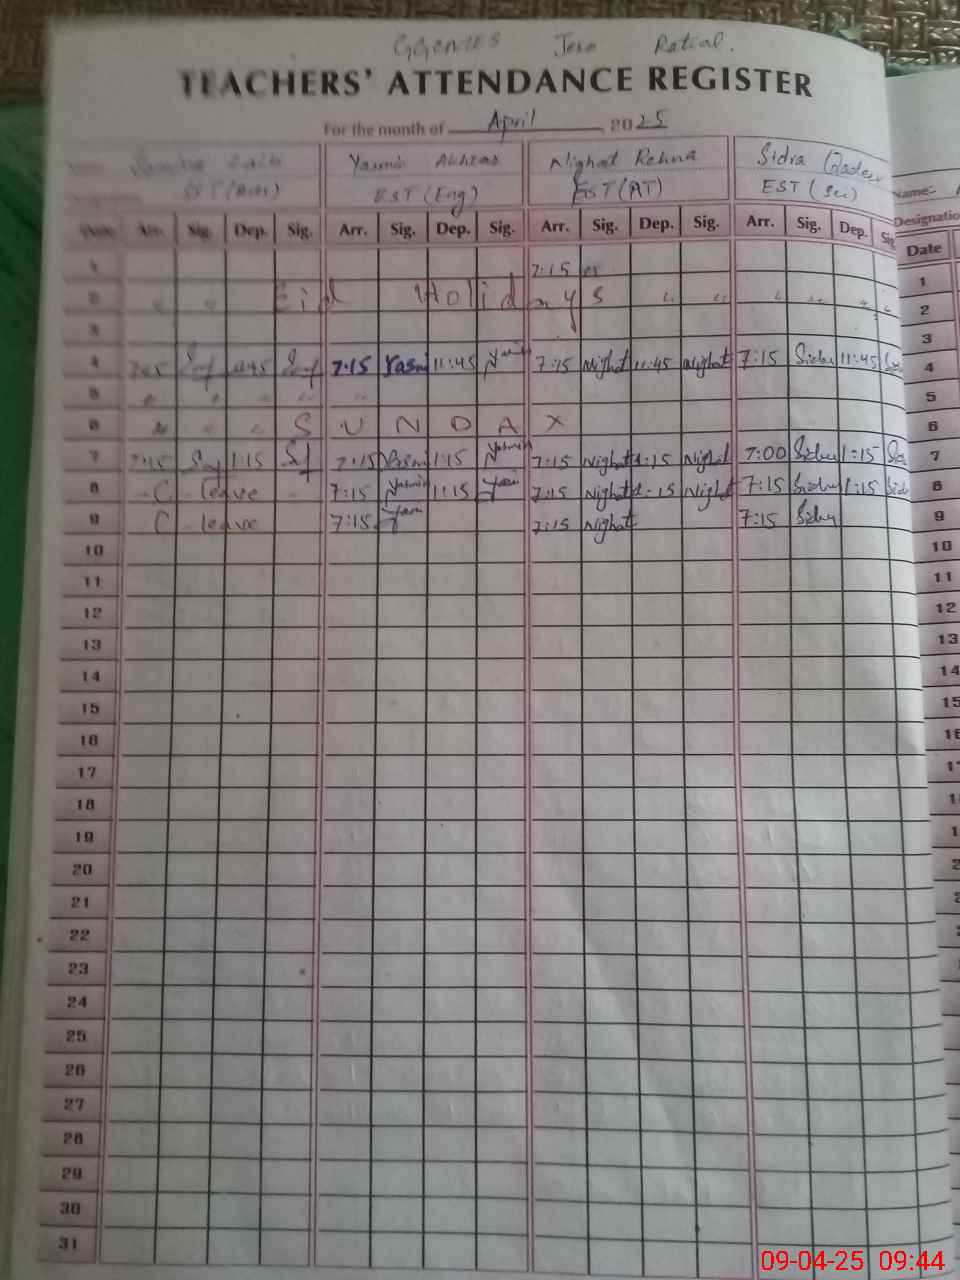 GGCMES Jera Ratial.
TEACHERS' ATTENDANCE REGISTER
For the month of April, 2025
Yasmin Akhtar Nighat Rehna Sidra Qadeer Name:-
EST (Eng) EST (AT) EST (Sci) Designatio
Date Arr. Sig. Dep. Sig. Arr. Sig. Dep. Sig. Arr. Sig. Dep. Sig. Arr. Sig. Dep. Sig. Date
1 7:15 1
2 Eid Holidays 2
3 3
4 7:15 Yasmi 11:45 Yasmi 7:15 Nighat 11:45 Nighat 7:15 Sidra 11:45 4
5 5
6 SUNDAY 6
7 1:15 7:15 Yasmi 1:15 Yasmin 7:15 Nighat 1:15 Nighat 7:00 Sidra 1:15 7
8 C-leave 7:15 Yasmin 1:15 Yasm 7:15 Nighat 1:15 Nighat 7:15 Sidra 1:15 8
9 C-leave 7:15 Yasm 7:15 Nighat 7:15 Sidra 9
10 10
11 11
12 12
13 13
14 14
15 15
16 16
17 17
18 1
19 1
20 2
21 2
22
23
24
25
26
27
28
29
30
31
09-04-25 09:44